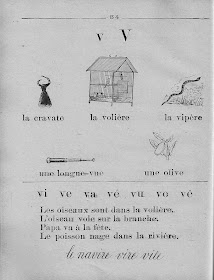 64
v V
la cravate la volière la vipère
une longue-vue une olive
vi ve va vé vu vo vê
Les oiseaux sont dans la volière.
L'oiseau vole sur la branche.
Papa va à la fête.
Le poisson nage dans la rivière.
le navire vire vite